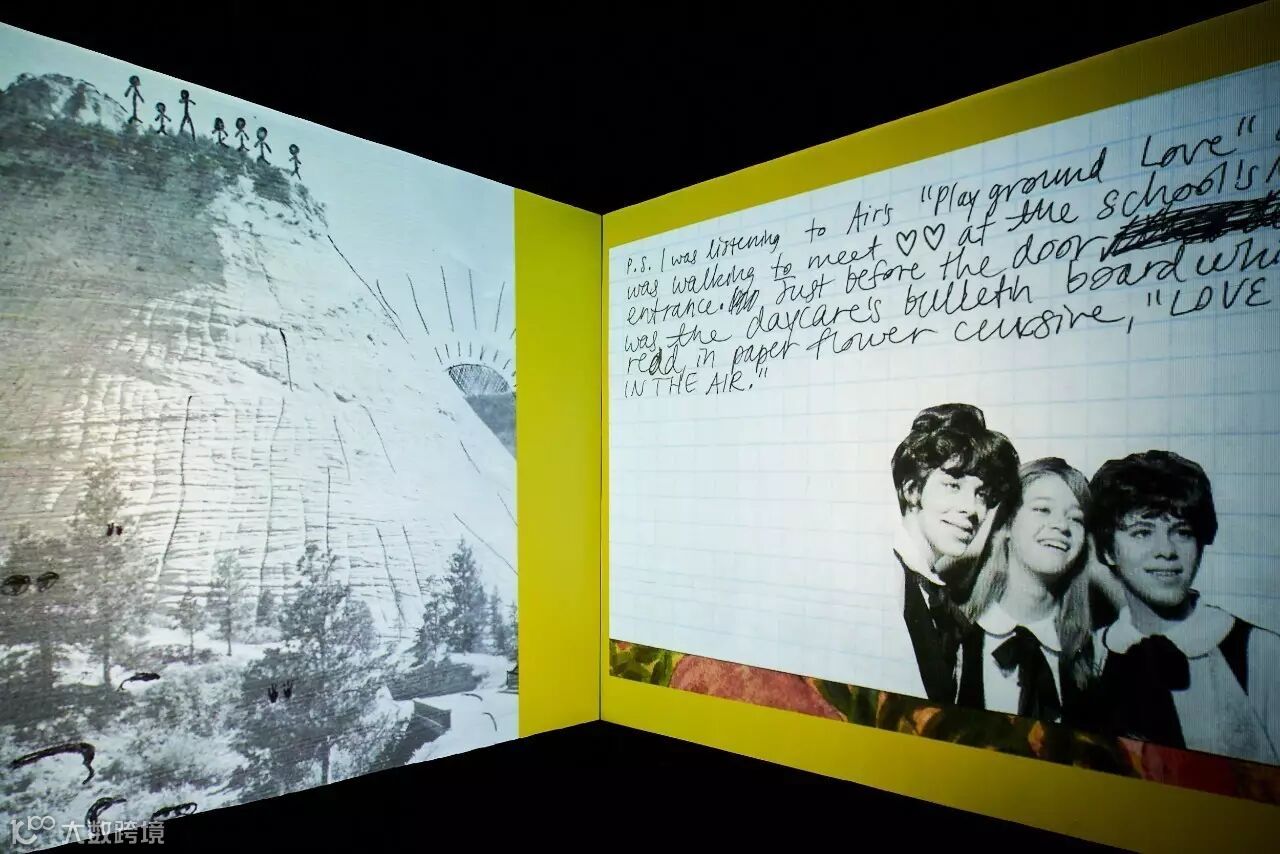 P.S. I was listening to Air's "Playground Love"
was walking to meet ♡♡ at the school's
entrance. Just before the door
was the daycare's bulletin board
read, in paper flower cursive, "LOVE
IN THE AIR."
大数跨境